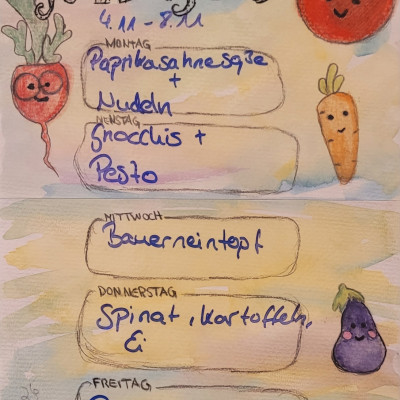 4.11 - 8.11
MONTAG
Paprikasahnesoße
+
Nudeln
DIENSTAG
Gnocchis +
Pesto
MITTWOCH
Bauerneintopf
DONNERSTAG
Spinat, Kartoffeln,
Ei
FREITAG